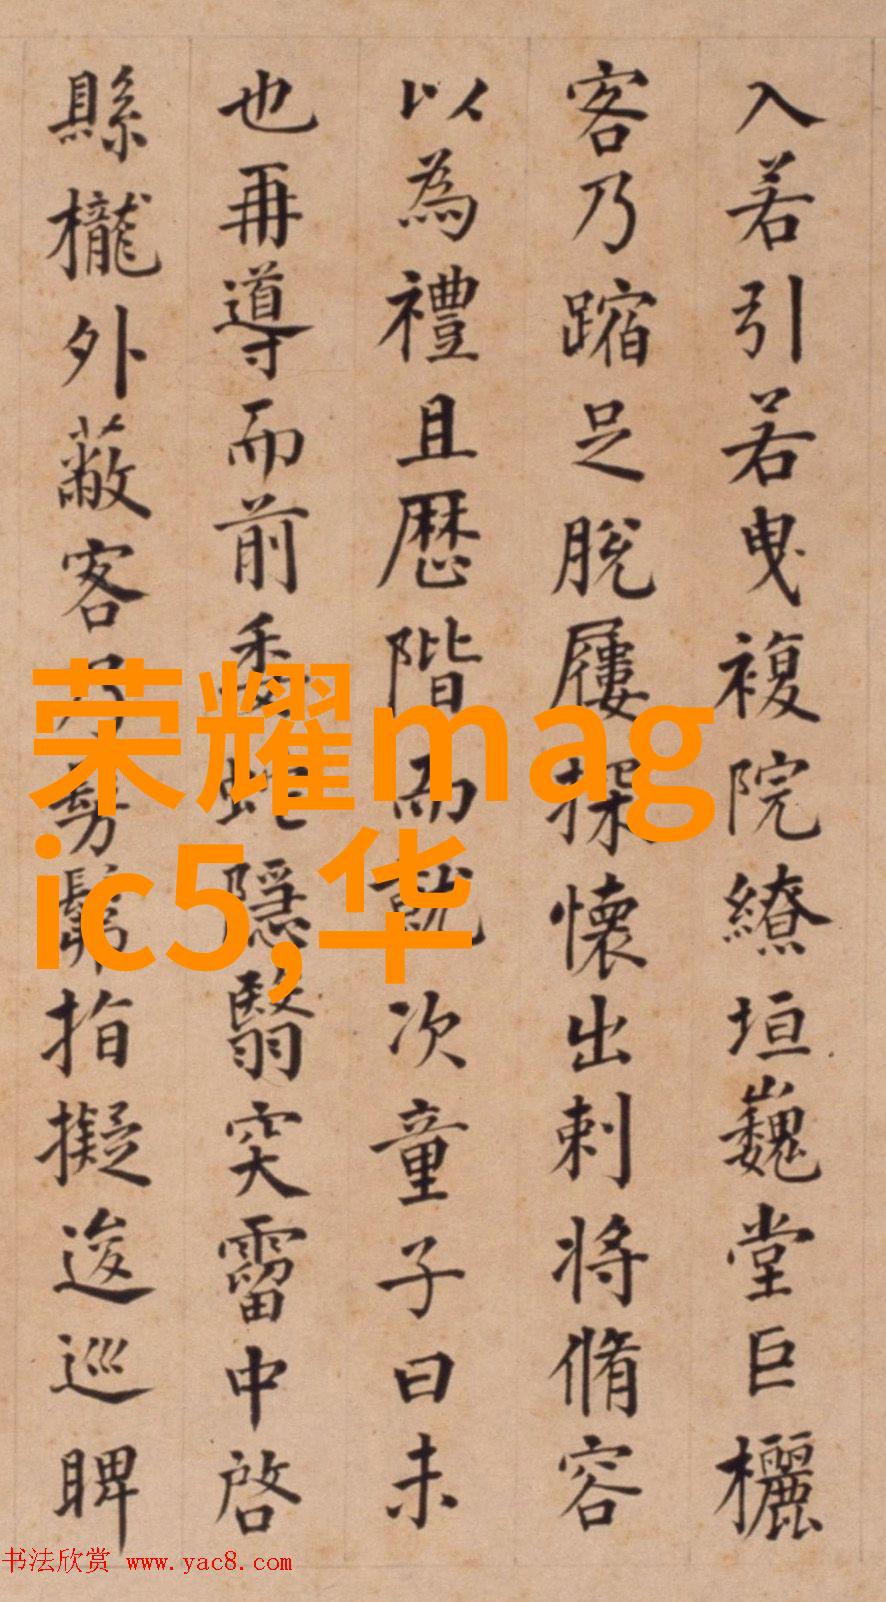 入若引若曳複院繚垣巍堂巨欐
客乃蹜足脫屨探懷出刺將脩容
以為禮且歷階而就次童子曰未
也再導而前委蛇隱翳突霤中啓
縣櫳外蔽客乃髣髴指擬逡巡睥
荣耀mag
ic5,华
书法欣赏 www.yac8.com